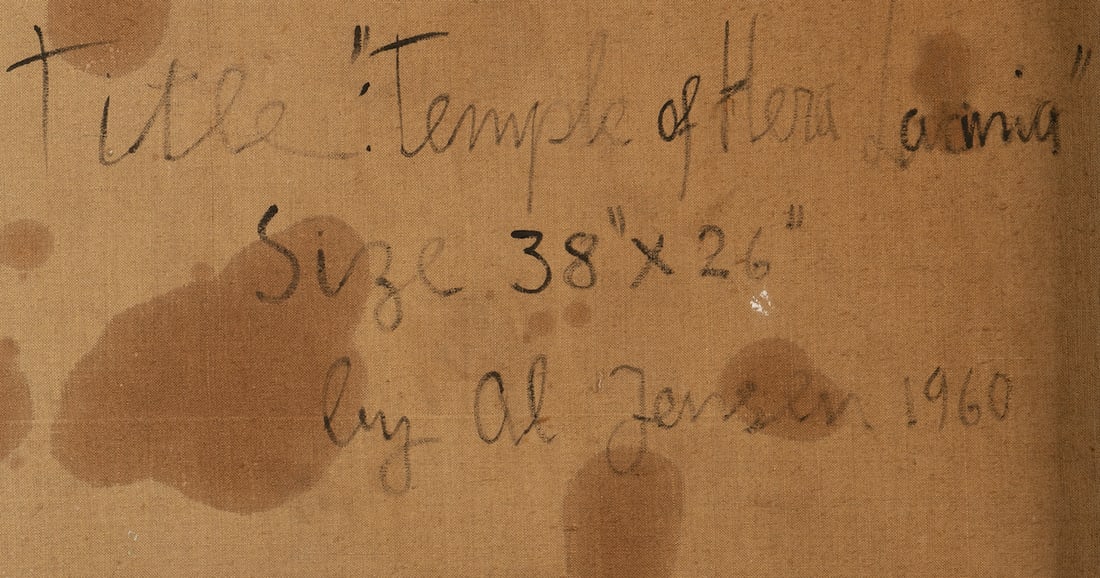 Title: "Temple of Hera Lacinia"
Size 38" x 26"
by Al Jensen 1960